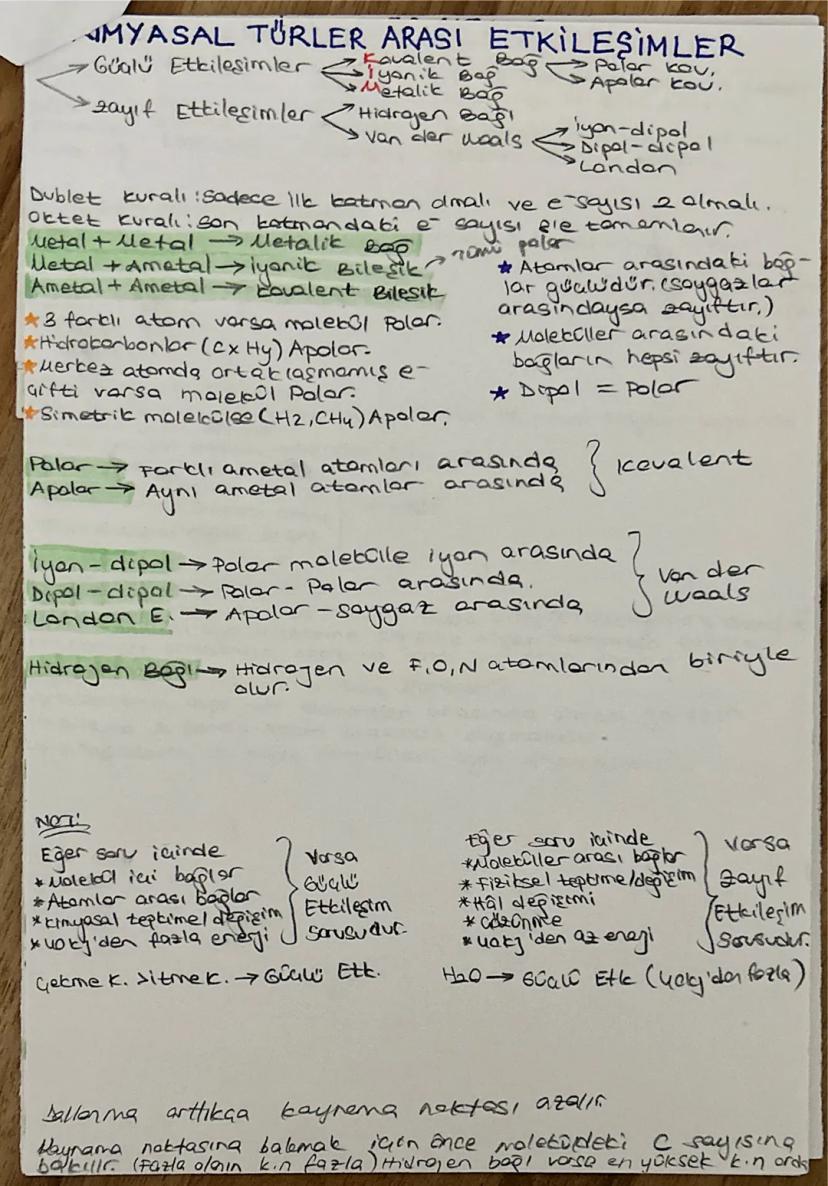 KİMYASAL TÜRLER ARASI ETKİLEŞİMLER
Güçlü Etkileşimler
Kovalent Bağ
Polar kov.
Apolar kov.
İyonik Bağ
Metalik Bağ
Zayıf Etkileşimler
Hidrojen Bağı
Van der Waals
İyon-dipol
Dipol-dipol
London
Dublet kuralı: Sadece ilk katman olmalı ve e- sayısı 2 olmalı.
Oktet kuralı: son katmandaki e- sayısı 8'e tamamlanır.
Metal + Metal → Metalik Bağ
Metal + Ametal → İyonik Bileşik → tümü polar
Ametal + Ametal → Kovalent Bileşik
★ 3 farklı atom varsa molekül Polar.
★ Hidrokarbonlar (CxHy) Apolar.
★ Merkez atomda ortaklaşmamış e-
çifti varsa molekül Polar.
★ Simetrik molekülse (H2, CH4) Apolar.
★ Atomlar arasındaki bağ-
lar güçlüdür. (soygazlar
arasındaysa zayıftır.)
★ Moleküller arasındaki
bağların hepsi zayıftır.
★ Dipol = Polar
Polar → Farklı ametal atomları arasında
Apolar → Aynı ametal atomlar arasında
Kovalent
İyon-dipol → Polar molekülle iyon arasında
Dipol-dipol → Polar-Polar arasında.
London E. → Apolar-soygaz arasında
Van der
Waals
Hidrojen Bağı → Hidrojen ve F,O,N atomlarından biriyle
olur.
NOT:
Eğer soru içinde
* Molekül içi bağlar
* Atomlar arası bağlar
* Kimyasal tepkime/değişim
* 40kj'den fazla enerji
Varsa
Güçlü
Etkileşim
Sorusudur.
Eğer soru içinde
* Moleküller arası bağlar
* Fiziksel tepkime/değişim
* Hâl değişimi
* Çözünme
* 40kj'den az enerji
Varsa
Zayıf
Etkileşim
Sorusudur.
Çekme K. > İtme K. → Güçlü Etk.
H2O → Güçlü Etk (40kj'dan fazla)
Dallanma arttıkça kaynama noktası azalır.
Kaynama noktasına bakmak için önce moleküldeki C sayısına
bakılır. (Fazla olanın k.n fazla) Hidrojen bağı varsa en yüksek k.n onda